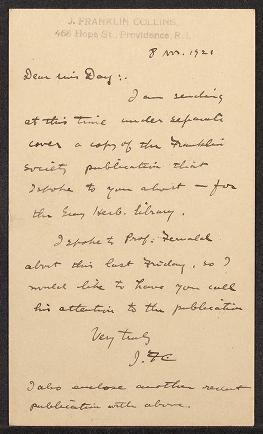 J. FRANKLIN COLLINS,
468 Hope St., Providence, R.I.
8 Nov. 1921
Dear Miss Day:.
I am sending
at this time under separate
cover a copy of the Franklin
Society publication that
I spoke to you about — for
the Gray Herb. Library.
I spoke to Prof. Fernald
about this last Friday, so I
would like to have you call
his attention to the publication
Very truly
J. F C
I also enclose another recent
publication with above.